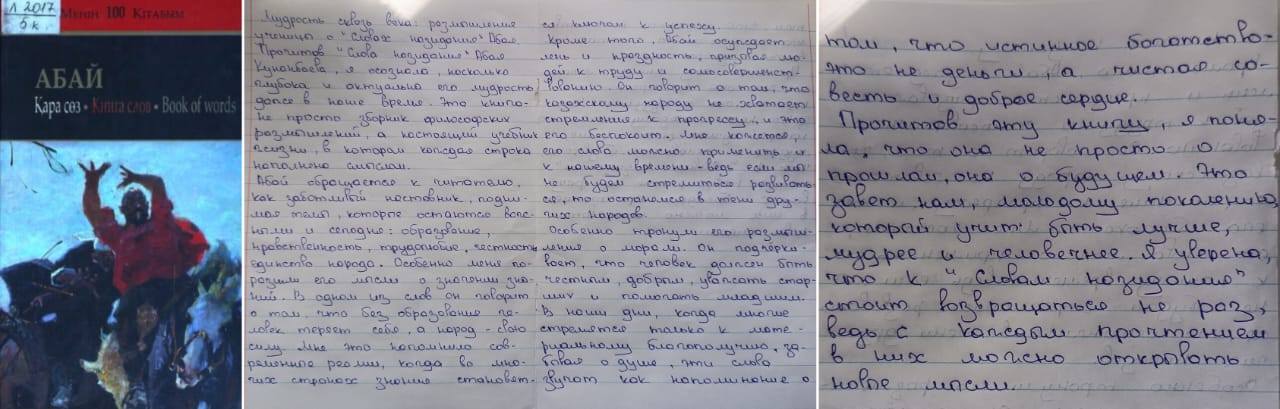 Л 2017
бк.
Менің 100 Кітабым
АБАЙ
Қара сөз • Книга слов • Book of words
Мудрость сквозь века: размышления
ученицы о "Словах назидания" Абая.
Прочитав "Слова назидания" Абая
Кунанбаева, я осознала, насколько
глубока и актуальна его мудрость
даже в наше время. Эта книга-
не просто сборник философских
размышлений, а настоящий учебник
жизни, в котором каждая строка
наполнена смыслом.
Абай обращается к читателю,
как заботливый наставник, подни-
мая темы, которые остаются важ-
ными и сегодня: образование,
нравственность, трудолюбие, честность
единство народа. Особенно меня по-
разили его мысли о значении зна-
ний. В одном из слов он говорит
о том, что без образования че-
ловек теряет себя, а народ - свою
силу. Мне это напомнило сов-
ременные реалии, когда во мно-
гих странах знание становит-
ся ключом к успеху.
Кроме того, Абай осуждает
лень и праздность, призывая лю-
дей к труду и самосовершенст-
вованию. Он говорит о том, что
казахскому народу не хватает
стремления к прогрессу, и это
его беспокоит. Мне кажется,
его слова можно применить и
к нашему времени - ведь если мы
не будем стремиться развивать
ся, то останемся в тени дру-
гих народов.
Особенно тронули его размыш-
ления о морали. Он подчёрки-
вает, что человек должен быть
честным, добрым, уважать стар-
ших и помогать младшим.
В наши дни, когда многие
стремятся только к мате-
риальному благополучию, за-
бывая о душе, эти слова
звучат как напоминание о
том, что истинное богатство-
это не деньги, а чистая со-
весть и доброе сердце.
Прочитав эту книгу, я поня-
ла, что она не просто о
прошлом, она о будущем. Это
завет нам, молодому поколению,
который учит быть лучше,
мудрее и человечнее. Я уверена,
что к "Словам назидания"
стоит возвращаться не раз,
ведь с каждым прочтением
в них можно открывать
новые мысли.